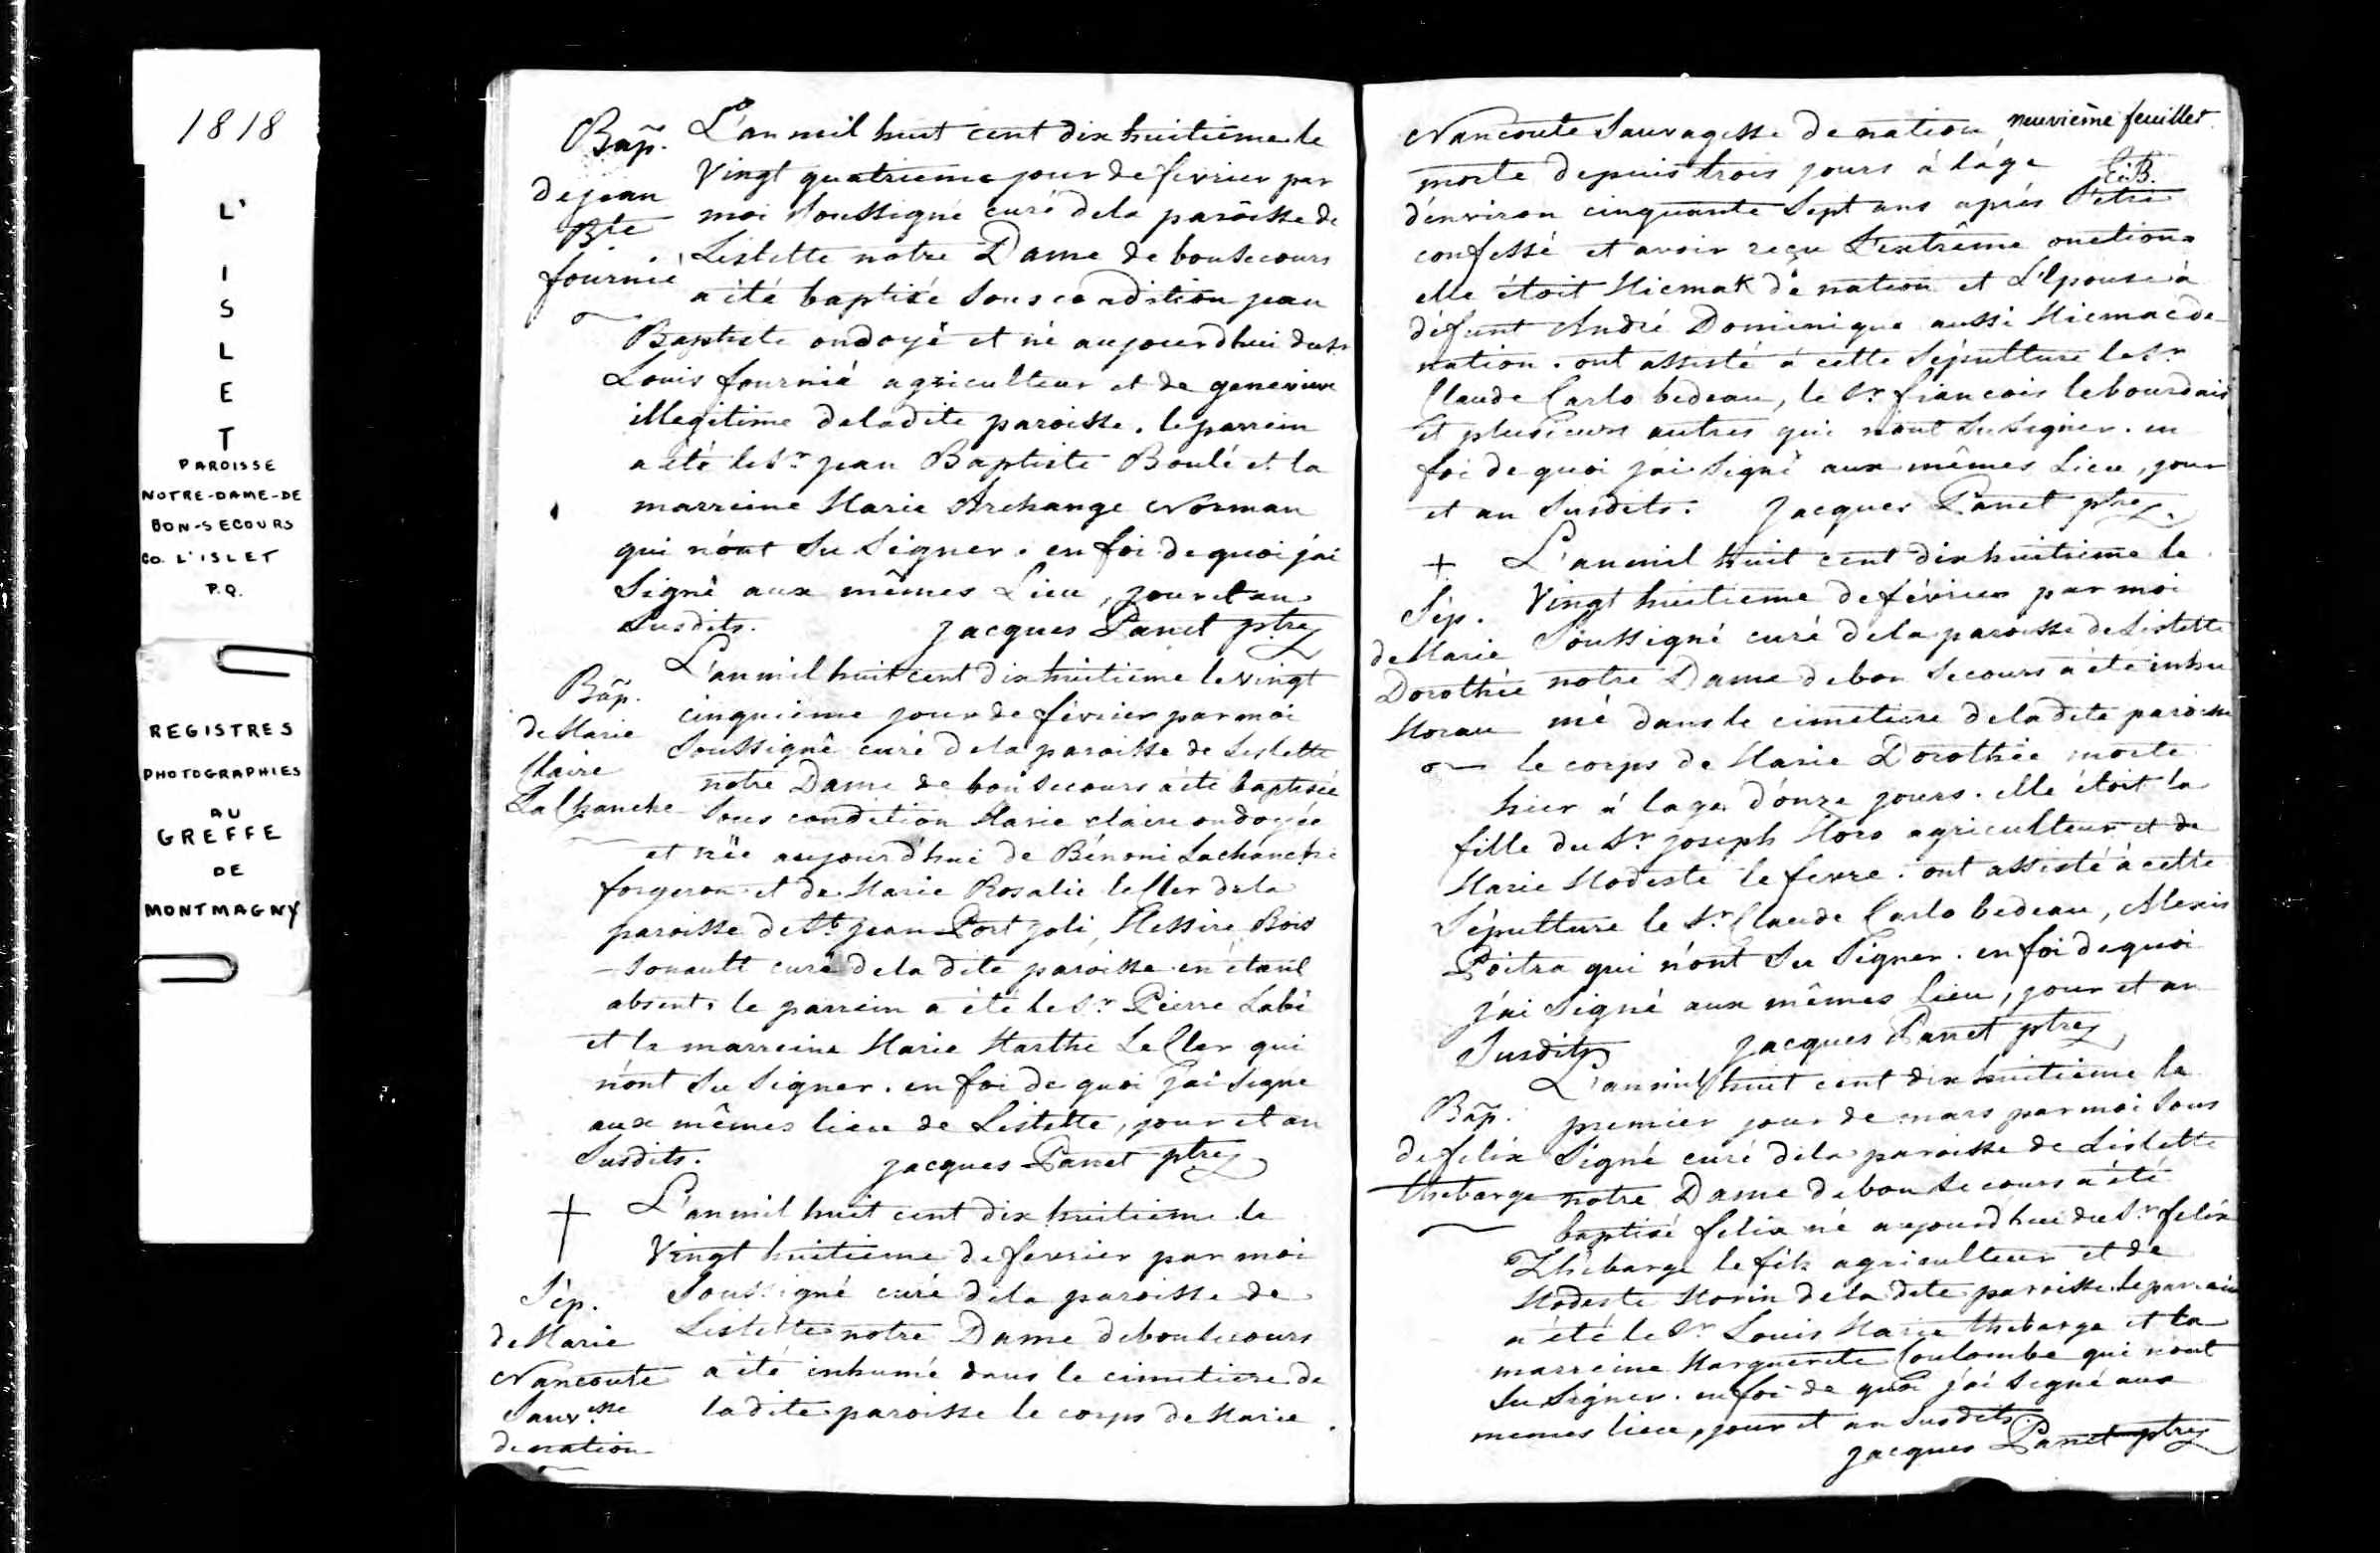 1818
L'
I
S
L
E
T
PAROISSE
NOTRE-DAME-DE
BON-SECOURS
CO. L'ISLET
P.Q.
REGISTRES
PHOTOGRAPHIES
AU
GREFFE
DE
MONTMAGNY
Bap.
de jean
Bte
fournié
L'an mil huit cent dix huitième le
Vingt quatrieme jour de fevrier par
moi Soussigné curé dela paroisse de
Lislette notre Dame de bonsecours
a été baptisé Sous condition jean
Baptiste ondoyé et né aujourdhui du Sr
Louis fournié agriculteur et de genevieve
illegitime dela dite paroisse. le parrein
a été le Sr jean Baptiste Boulé et la
marreine Marie Archange Norman
qui n'ont Su Signer. en foi de quoi j'ai
Signé aux mêmes Lieu, jour et an
Susdits. Jacques Panet ptre
Bap.
de Marie
Claire
LaChanche
L'an mil huit cent dix huitième le vingt
cinquieme jour de février par moi
Soussigné curé dela paroisse de Leslette
notre Dame de bonsecours a été baptisée
Sous condition Marie claire ondoyée
et née aujourd'hui de Bénoni Lachanche
forgeron et de Marie Rosalie leCler dela
paroisse de St jean Port joli, Messire Bois
-sonault curé dela dite paroisse en étant
absent. le parrein a été le Sr Pierre Labé
et la marreine Marie Marthe LeCler qui
n'ont Su Signer. en foi de quoi j'ai Signé
aux mêmes lieu de Lislette, jour et an
Susdits. Jacques Panet ptre
†
Sép.
de Marie
Nancoute
Sauv.esse
de nation
L'an mil huit cent dix huitieme le
Vingt huitieme de fevrier par moi
Soussigné curé dela paroisse de
Lislette notre Dame de bonsecours
a été inhumé dans le cimetiere de
ladite paroisse le corps de Marie
neuvième feuillet
Nancoute Sauvagesse de nation
morte depuis trois jours à l'âge
d'environ cinquante Sept ans après S'etre
confessé et avoir reçu L'extrême onction
elle étoit Micmak de nation et L'Epouse à
défunt André Dominique aussi Micmac de
nation. ont assisté à cette Sépulture le Sr
Claude Carlo bedeau, le Sr francois lebourdais
et plusieurs autres qui n'ont Su Signer. en
foi de quoi j'ai Signé aux mêmes Lieu, jour
et an Susdits. Jacques Panet ptre
+
Sép.
de Marie
Dorothée
Morau
L'an mil huit cent dix huitieme le
Vingt huitieme de février par moi
Soussigné curé dela paroisse de Lislette
notre Dame de bon Secours a été inhu
mé dans le cimetiere dela dite paroisse
le corps de Marie Dorothée morte
hier à lage d'onze jours. elle étoit la
fille du Sr joseph Moro agriculteur et de
Marie Modeste le fevre. ont assisté à cette
Sépulture le Sr Claude Carlo bedeau, Alexis
Poitra qui n'ont Su Signer. en foi de quoi
j'ai Signé aux mêmes lieu, jour et an
Susdits Jacques Panet ptre
Bap.
de felix
thebarge
L'an mil huit cent dix huitieme le
premier jour de mars par moi Sous
Signé curé dela paroisse de Lislette
notre Dame de bon Secours a été
baptisé felix né aujourdhui du Sr felix
Thébarge le fils agriculteur et de
Modeste Morin dela dite paroisse. le parrain
a été le Sr Louis Marie thebarge et la
marreine Marguerite Coulombe qui n'ont
Su Signer. en foi de quoi j'ai Signé aux
memes lieu, jour et an Susdits.
Jacques Panet ptre